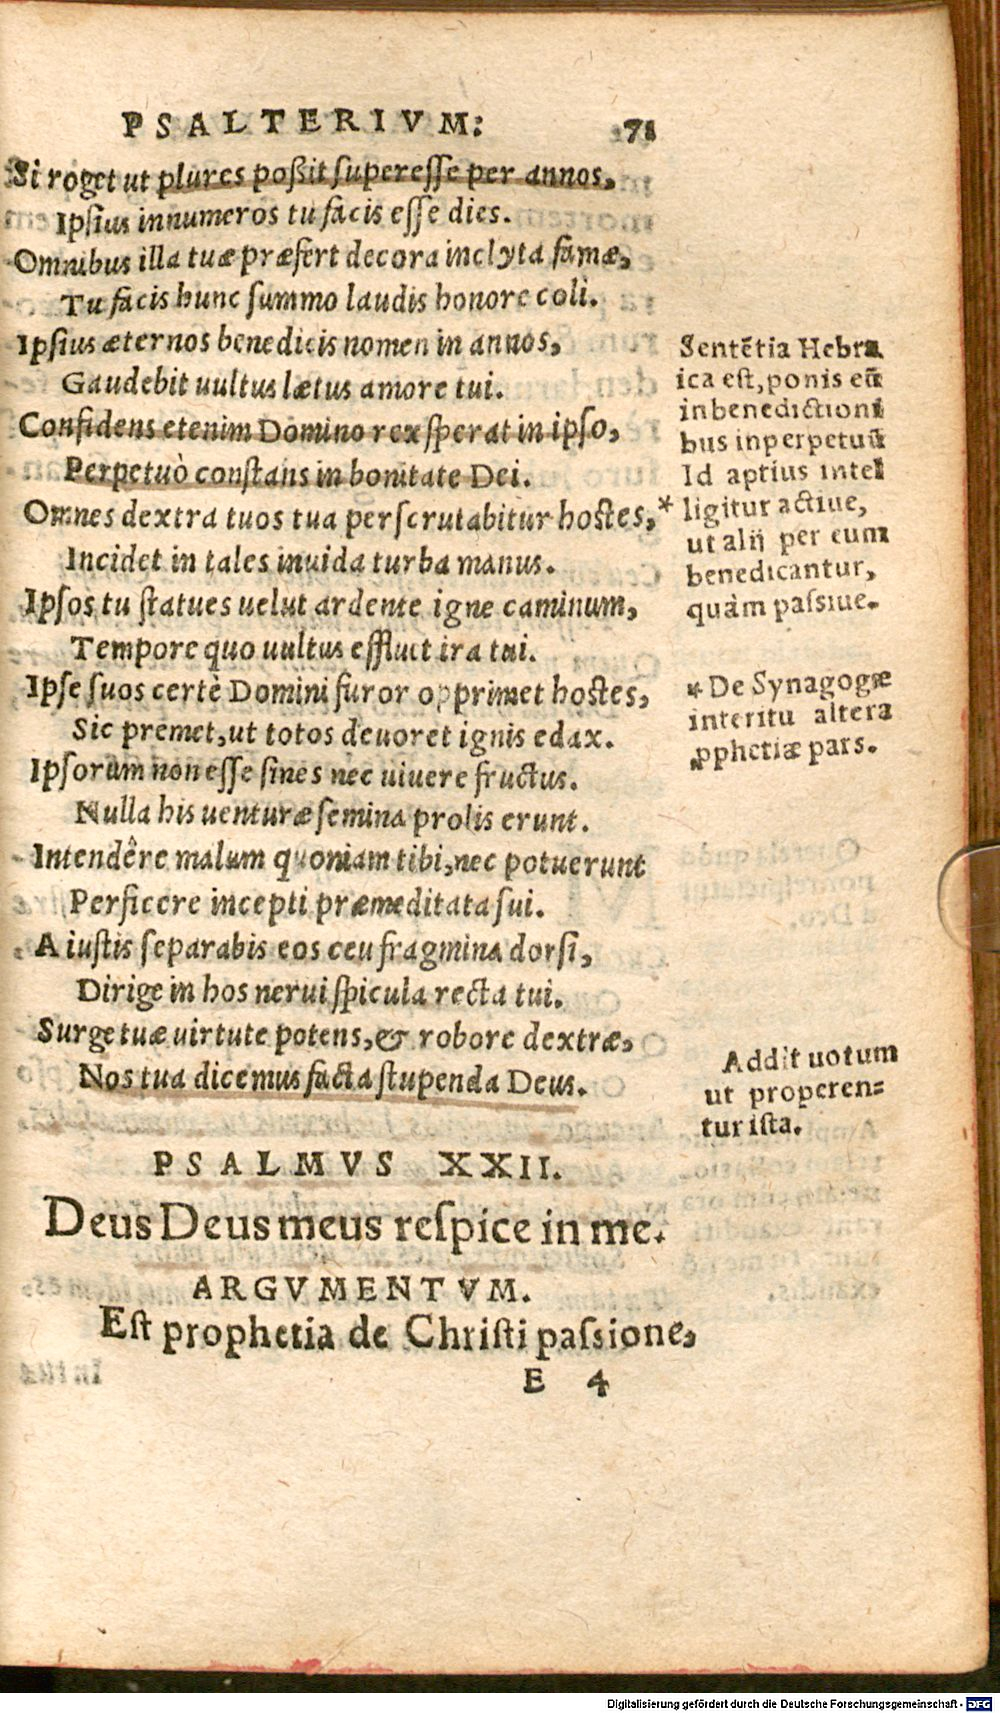 PSALTERIVM: 71
Si roget ut plures poßit superesse per annos,
Ipsius innumeros tu facis esse dies.
Omnibus illa tuæ præfert decora inclyta famæ,
Tu facis hunc summo laudis honore coli.
Ipsius æternos benedicis nomen in annos,
Gaudebit uultus lætus amore tui.
Confidens etenim Domino rex sperat in ipso,
Perpetuò constans in bonitate Dei.
Omnes dextra tuos tua perscrutabitur hostes,*
Incidet in tales inuida turba manus.
Ipsos tu statues uelut ardente igne caminum,
Tempore quo uultus effluit ira tui.
Ipse suos certè Domini furor opprimet hostes,
Sic premet, ut totos deuoret ignis edax.
Ipsorum non esse sines nec uiuere fructus.
Nulla his uenturæ semina prolis erunt.
Intendêre malum quoniam tibi, nec potuerunt
Perficere incepti præmeditata sui.
A iustis separabis eos ceu fragmina dorsi,
Dirige in hos nerui spicula recta tui.
Surge tuæ uirtute potens, & robore dextræ,
Nos tua dicemus facta stupenda Deus.
Sentētia Hebra
ica est, ponis eū
in benedictioni
bus in perpetuū
Id aptius intel
ligitur actiue,
ut alij per eum
benedicantur,
quàm passiue.
* De Synagogæ
interitu altera
pphetiæ pars.
Addit uotum
ut properen=
tur ista.
PSALMVS XXII.
Deus Deus meus respice in me.
ARGVMENTVM.
Est prophetia de Christi passione,
E 4
Digitalisierung gefördert durch die Deutsche Forschungsgemeinschaft - DFG